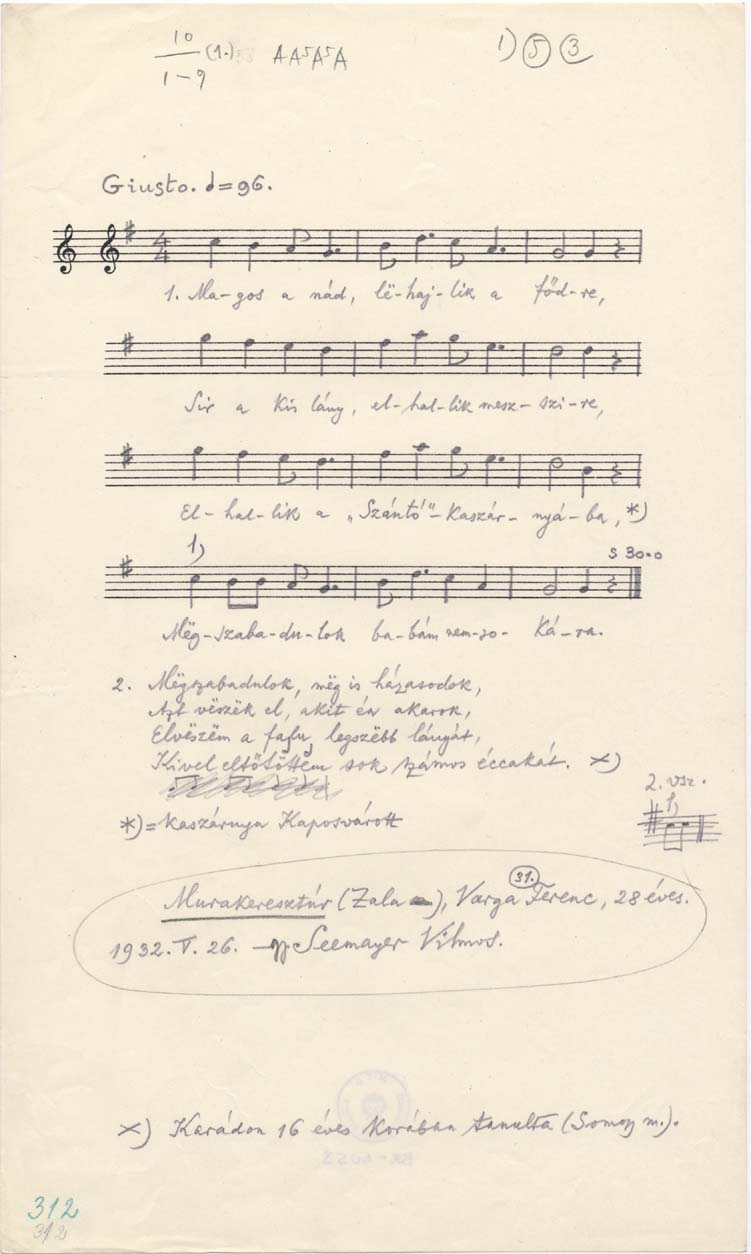 10 (1.) AA⁵A⁵A 1) 5 3
1-9
Giusto. d=96.
4
4
1. Ma-gos a nád, lë-haj-lik a főd-re,
Sir a kis lány, el-hal-lik mesz-szi-re,
El-hal-lik a "Szántó"-kaszár-nyá-ba, *)
1) S 30.0
Mëg-szaba-du-lok ba-bám nem-so-ká-ra.
2. Mëgszabadulok, mëg is házasodok,
Azt vëszëk el, akit én akarok,
Elvëszëm a falu legszëbb lányát,
Kivel eltőtöttem sok számos éccakát. x)
*)=kaszárnya Kaposvárott
2. vsz.
1)
Murakeresztúr (Zala), Varga Ferenc, 28 éves.
31.
1932. V. 26. Seemayer Vilmos.
x) Karádon 16 éves korában tanulta (Somogy m.).
312
312